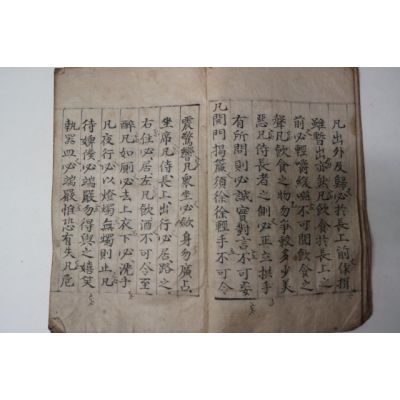 凡出外及歸必於長上前作揖
雖暫出亦然凡飲食於長上之
前必輕嚼緩嚥不可聞飲食之
聲凡飲食之物勿爭較多少美
惡凡侍長者之側必正立拱手
有所問則必誠實對言不可妄
凡開門揭簾須徐徐輕手不可令
震驚響凡衆坐必斂身勿廣占
坐席凡侍長上出行必居路之
右住必居左凡飲酒不可令至
醉凡如厠必去上衣下必洗手
凡夜行必以燈燭無燭則止凡
待婢僕必端嚴勿得與之嬉笑
執器皿必端嚴惟恐有失凡危